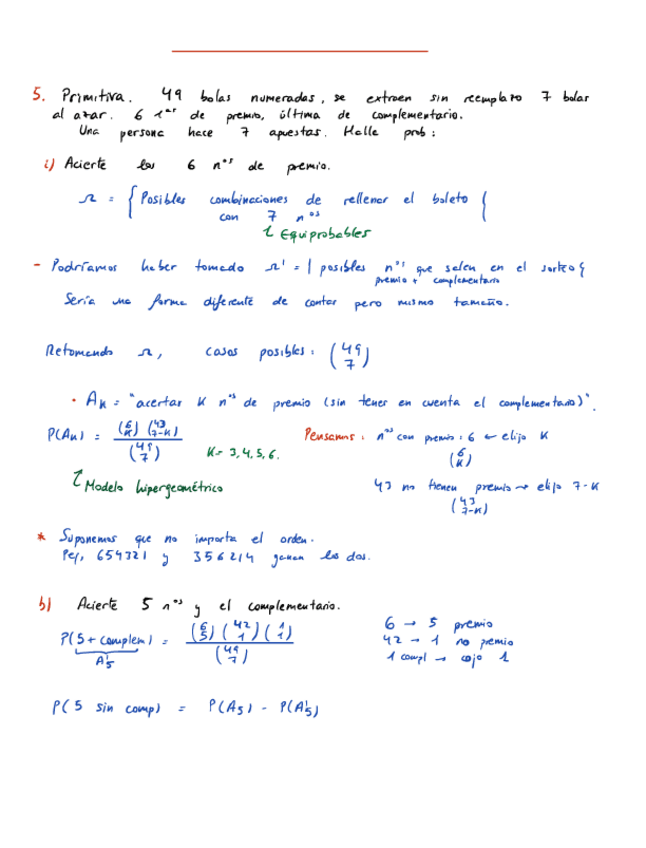 5. Primitiva. 49 bolas numeradas, se extraen sin reemplazo 7 bolas
al azar. 6 1ᵃˢ de premio, última de complementario.
Una persona hace 7 apuestas. Halle prob:
i) Acierte los 6 nᵒˢ de premio.
Ω = { Posibles combinaciones de rellenar el boleto {
con 7 nᵒˢ
↳ Equiprobables
- Podríamos haber tomado Ω' = | posibles nᵒˢ que salen en el sorteo {
premio + complementario
Sería una forma diferente de contar pero mismo tamaño.
Retomando Ω, casos posibles: (49 7)
• Aₖ = "acertar K nᵒˢ de premio (sin tener en cuenta el complementario)".
P(Aₖ) = (6 K) (43 7-K) / (49 7) K = 3, 4, 5, 6.
Pensamos: nᵒˢ con premio: 6 ← elijo K
(6 K)
↳ Modelo hipergeométrico
43 no tienen premio → elijo 7-K
(43 7-K)
* Suponemos que no importa el orden.
Pej, 654321 y 356214 ganan los dos.
b) Acierte 5 nᵒˢ y el complementario.
P(5 + complem) = (6 5) (42 1) (1 1) / (49 7)
A'5
6 → 5 premio
42 → 1 no premio
1 compl → cojo 1
P(5 sin comp) = P(A5) - P(A'5)